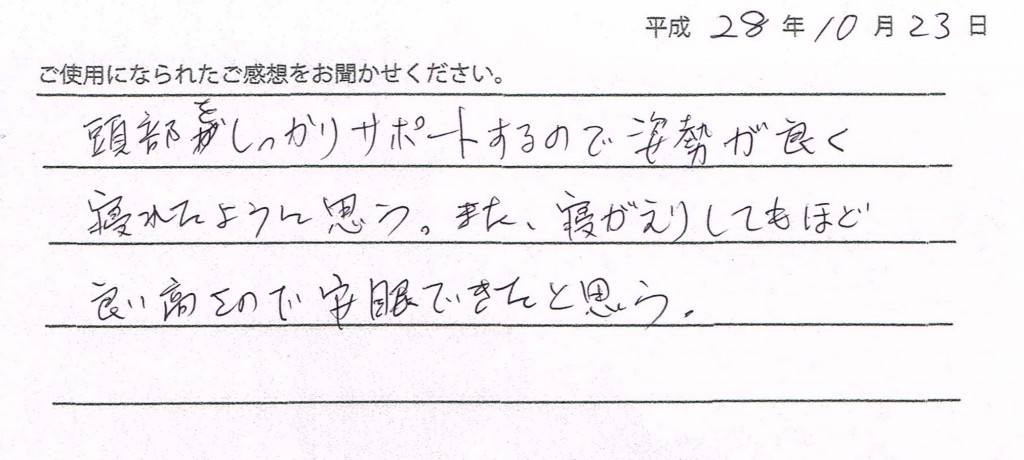 平成 28 年 10 月 23 日
ご使用になられたご感想をお聞かせください。
頭部をしっかりサポートするので姿勢が良く
寝れたように思う。また、寝がえりしてもほど
良い高さので安眠できたと思う。